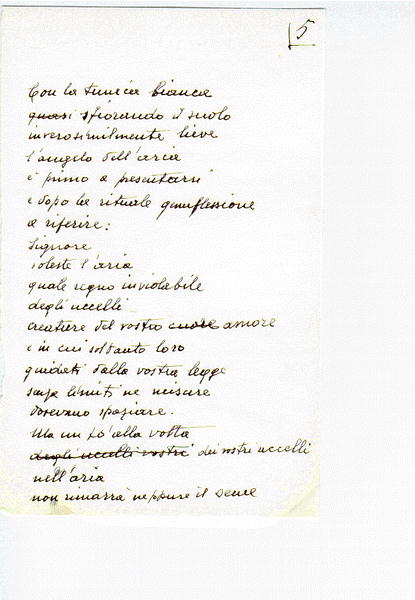 5
Con la tunica bianca
quasi sfiorando il suolo
inverosimilmente lieve
l'angelo dell'aria
è primo a presentarsi
e dopo la rituale genuflessione
a riferire:
Signore
voleste l'aria
quale regno inviolabile
degli uccelli
creature del vostro cuore amore
e in cui soltanto loro
guidati dalla vostra legge
senza limiti né misure
dovevano spaziare.
Ma un po' alla volta
degli uccelli vostri dei vostri uccelli
nell'aria
non rimarrà neppure il seme